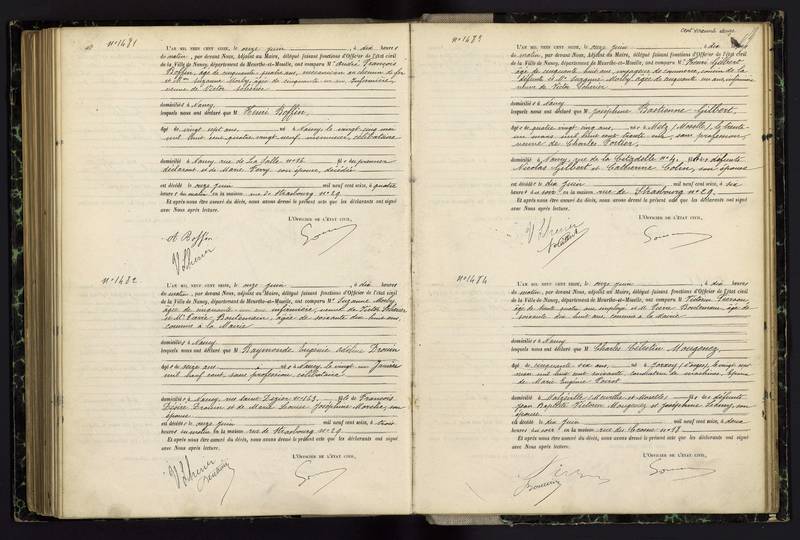 N° 1481
L'AN MIL NEUF CENT SEIZE, le seize juin, à dix heures
du matin, par devant Nous, Adjoint au Maire, délégué faisant fonctions d'Officier de l'état civil
de la Ville de Nancy, département de Meurthe-et-Moselle, ont comparu M. André François
Boffin, âgé de cinquante quatre ans, mécanicien au chemin de fer
et Mme Suzanne Morly, âgée de cinquante un ans, infirmière,
veuve de Victor Scherer
domiciliés à Nancy
lesquels nous ont déclaré que M. Henri Boffin,
âgé de vingt sept ans, né à Nancy, le vingt cinq mai
mil huit cent quatre vingt neuf, célibataire
domicilié à Nancy rue de La Salle n° 16 fils du premier
déclarant et de Marie son épouse, décédée
est décédé le seize juin mil neuf cent seize, à quatre
heures du matin en la maison rue de Strasbourg n° 29
Et après nous être assuré du décès, nous avons dressé le présent acte que les déclarants ont signé
avec Nous après lecture.
L'OFFICIER DE L'ÉTAT CIVIL,
A Boffin
V Scherer
N° 1482
L'AN MIL NEUF CENT SEIZE, le seize juin, à dix heures
du matin, par devant Nous, Adjoint au Maire, délégué faisant fonctions d'Officier de l'état civil
de la Ville de Nancy, département de Meurthe-et-Moselle, ont comparu M. Suzanne Morly,
âgée de cinquante un ans infirmière, veuve de Victor Scherer
et M. Bontemain, âgée de soixante dix huit ans,
commis à la Mairie
domiciliés à Nancy
lesquels nous ont déclaré que M. Raymonde Eugénie Drouin
âgée de seize ans née à Nancy, le vingt un Janvier
mil neuf cent, sans profession, célibataire
domiciliée à Nancy, rue Saint Dizier n° 163, fille de François
Désiré Drouin et de Marie Louise Joséphine son
épouse
est décédée le seize juin mil neuf cent seize, à trois
heures du matin en la maison rue de Strasbourg n° 29
Et après nous être assuré du décès, nous avons dressé le présent acte que les déclarants ont signé
avec Nous après lecture.
L'OFFICIER DE L'ÉTAT CIVIL,
V Scherer
N° 1483
L'AN MIL NEUF CENT SEIZE, le seize juin, à dix heures
du matin, par devant Nous, Adjoint au Maire, délégué faisant fonctions d'Officier de l'état civil
de la Ville de Nancy, département de Meurthe-et-Moselle, ont comparu M. Gilbert,
âgé de cinquante huit ans, voyageur de commerce, cousin de la
défunte et Me Suzanne Morly âgée de cinquante un ans, infirmière
veuve de Victor Scherer
domiciliés à Nancy
lesquels nous ont déclaré que M. Joséphine Bastienne Gilbert,
âgée de quatre vingt cinq ans, née à Metz (Moselle), le trente
un mars mil huit cent trente un, sans profession,
veuve de Charles Portier,
domiciliée à Nancy, rue de la Citadelle n° 4, fille des défunts
Nicolas Gilbert et Catherine Colin, son épouse
est décédée le dix juin mil neuf cent seize, à dix
heures du soir en la maison rue de Strasbourg n° 29
Et après nous être assuré du décès, nous avons dressé le présent acte que les déclarants ont signé
avec Nous après lecture.
L'OFFICIER DE L'ÉTAT CIVIL,
V Scherer
N° 1484
L'AN MIL NEUF CENT SEIZE, le seize juin, à dix heures
du matin, par devant Nous, Adjoint au Maire, délégué faisant fonctions d'Officier de l'état civil
de la Ville de Nancy, département de Meurthe-et-Moselle, ont comparu M. Victorin
âgé de trente quatre ans employé et M. Pierre Bontemain âgé de
soixante dix huit ans, commis à la Mairie
domiciliés à Nancy
lesquels nous ont déclaré que M. Charles Célestin Mougenez,
âgé de cinquante six ans, né à (Vosges), le vingt
mil huit cent soixante, conducteur de machines, époux
de Marie Eugénie Poirot
domicilié à Malzéville (Meurthe et Moselle) fils des défunts
Jean Baptiste Victorin Mougenez et Joséphine son
épouse
est décédé le dix juin mil neuf cent seize, à deux
heures du soir en la maison rue n° 18
Et après nous être assuré du décès, nous avons dressé le présent acte que les déclarants ont signé
avec Nous après lecture.
L'OFFICIER DE L'ÉTAT CIVIL,